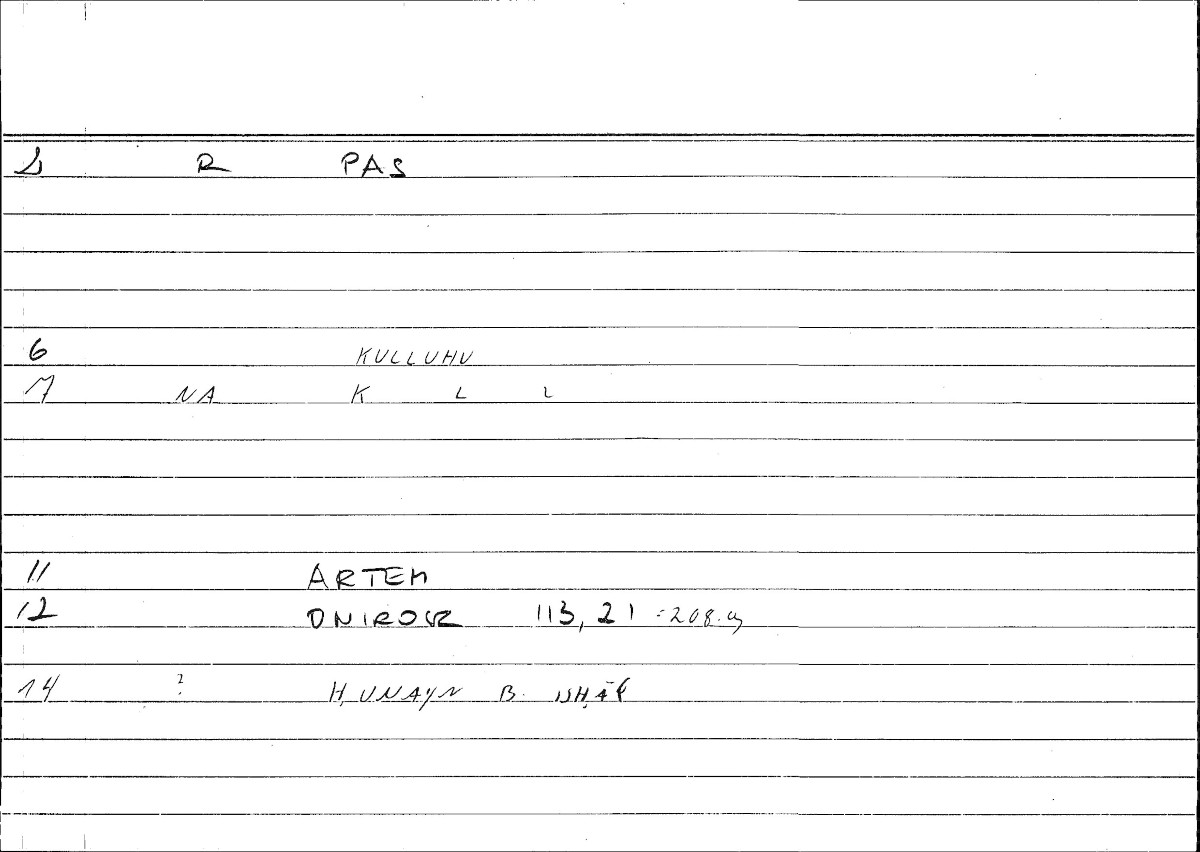 1 R PAS
6 KULLUHU
7 NA K L L
11 ARTEM
12 ONIROCR 113, 21 =208.
14 ? ḤUNAYN B. ISḤĀQ